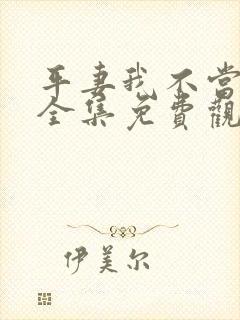 平妻我不当
全集免費觀
伊美尔